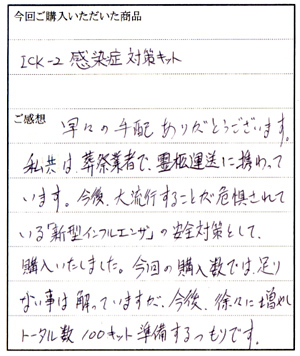 今回ご購入いただいた商品
ICK-2 感染症対策キット
ご感想
早々の手配ありがとうございます。
私共は、葬祭業者で、霊柩運送に携わって
います。今後、大流行することが危惧されて
いる「新型インフルエンザ」の安全対策として、
購入いたしました。今回の購入数では、足り
ない事は解っていますが、今後、徐々に増やし
トータル数 100キット準備するつもりです。